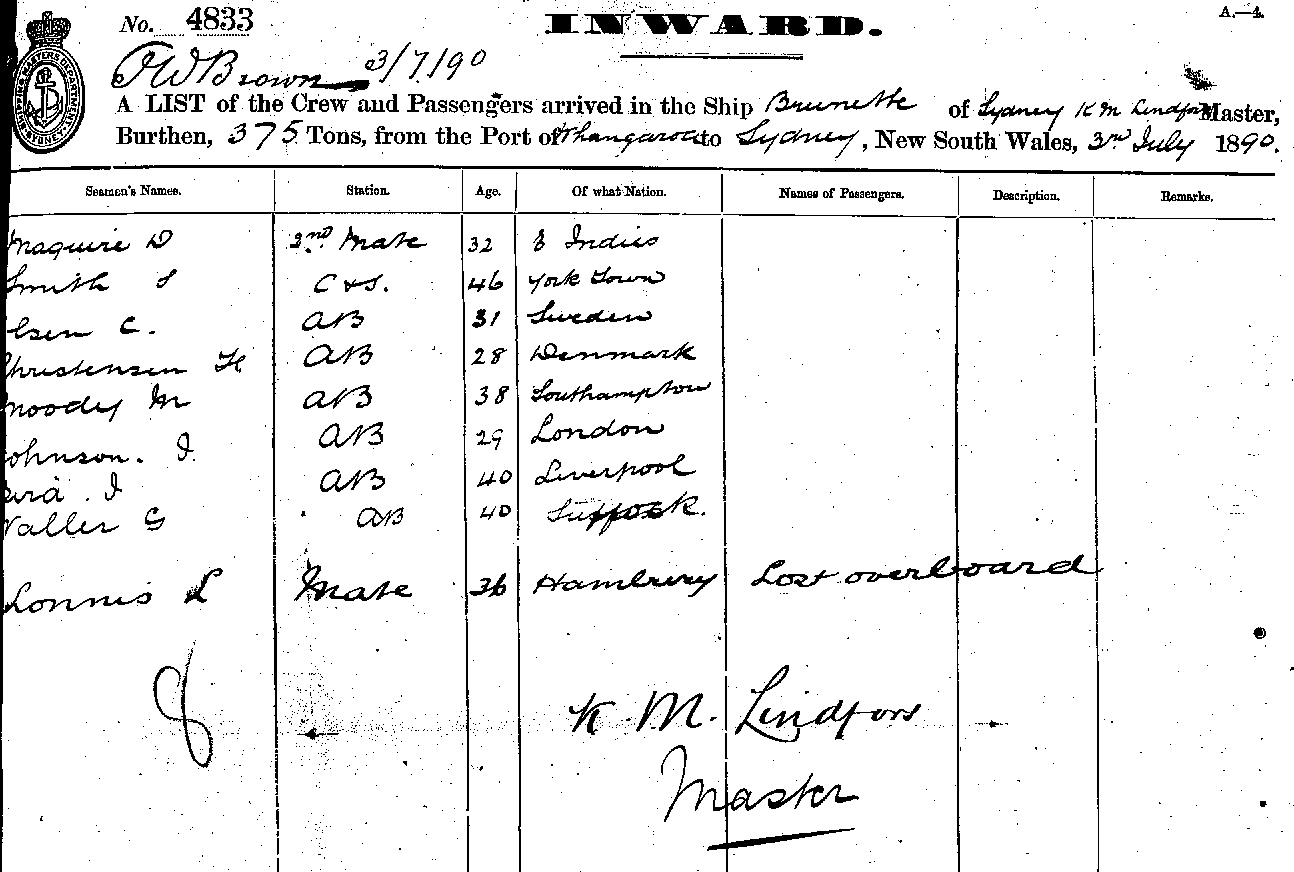 No. 4833
INWARD.
A.—4.
PW Brown 3/7/90
A LIST of the Crew and Passengers arrived in the Ship Brunette of Sydney K M Lindfors Master,
Burthen, 375 Tons, from the Port of Whangaroa to Sydney, New South Wales, 3rd July 1890.
Seamen's Names. Station. Age. Of what Nation. Names of Passengers. Description. Remarks.
Maguire D 2nd Mate 32 E Indies
Smith S C & S. 46 York Town
lsen C. AB 31 Sweden
Christensen H AB 28 Denmark
Moody M AB 38 Southampton
Johnson. I. AB 29 London
I AB 40 Liverpool
Waller G AB 40 Suffolk.
Lonnis L Mate 36 Hamburg Lost overboard
8
K. M. Lindfors
Master